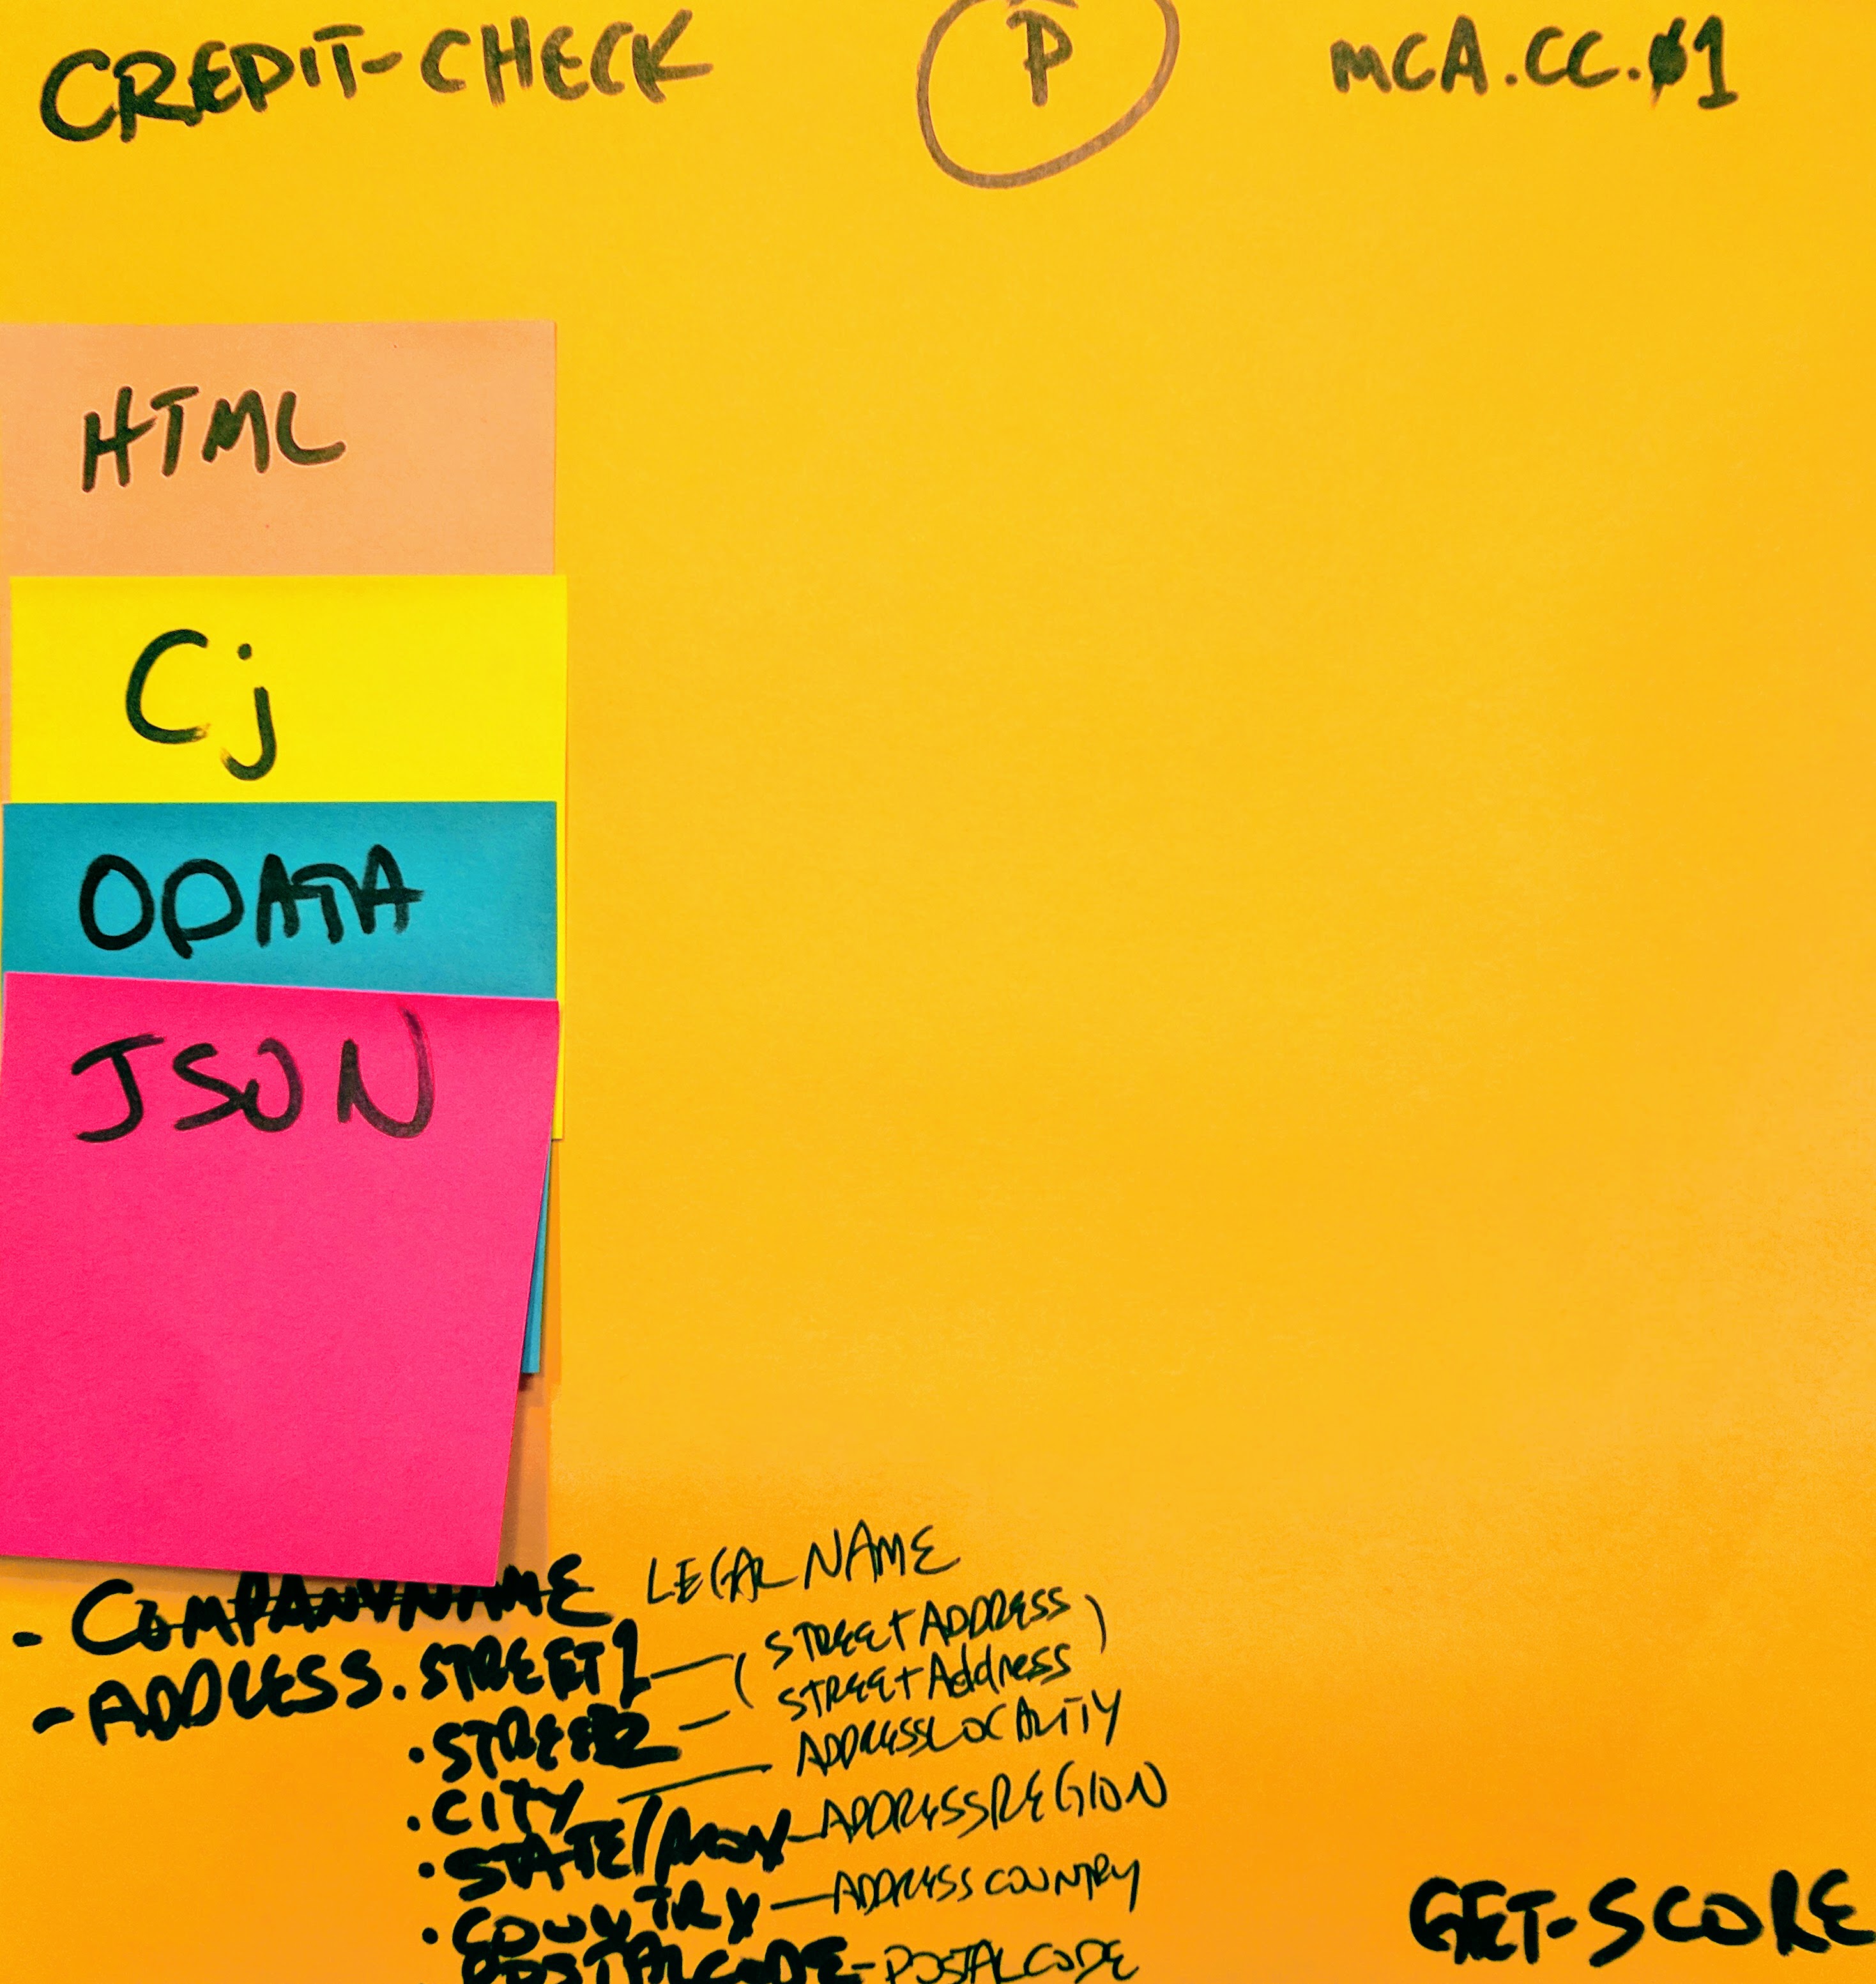 CREDIT-CHECK P MCA.CC.01
HTML
Cj
ODATA
JSON
- COMPANYNAME LEGAL NAME
- ADDRESS.STREET1 — (STREET ADDRESS)
.STREET2 — STREET Address
.CITY — ADDRESSLOCALITY
.STATE/PROV - ADDRESSREGION
.COUNTRY — ADDRESSCOUNTRY
POSTALCODE - POSTALCODE
GET-SCORE